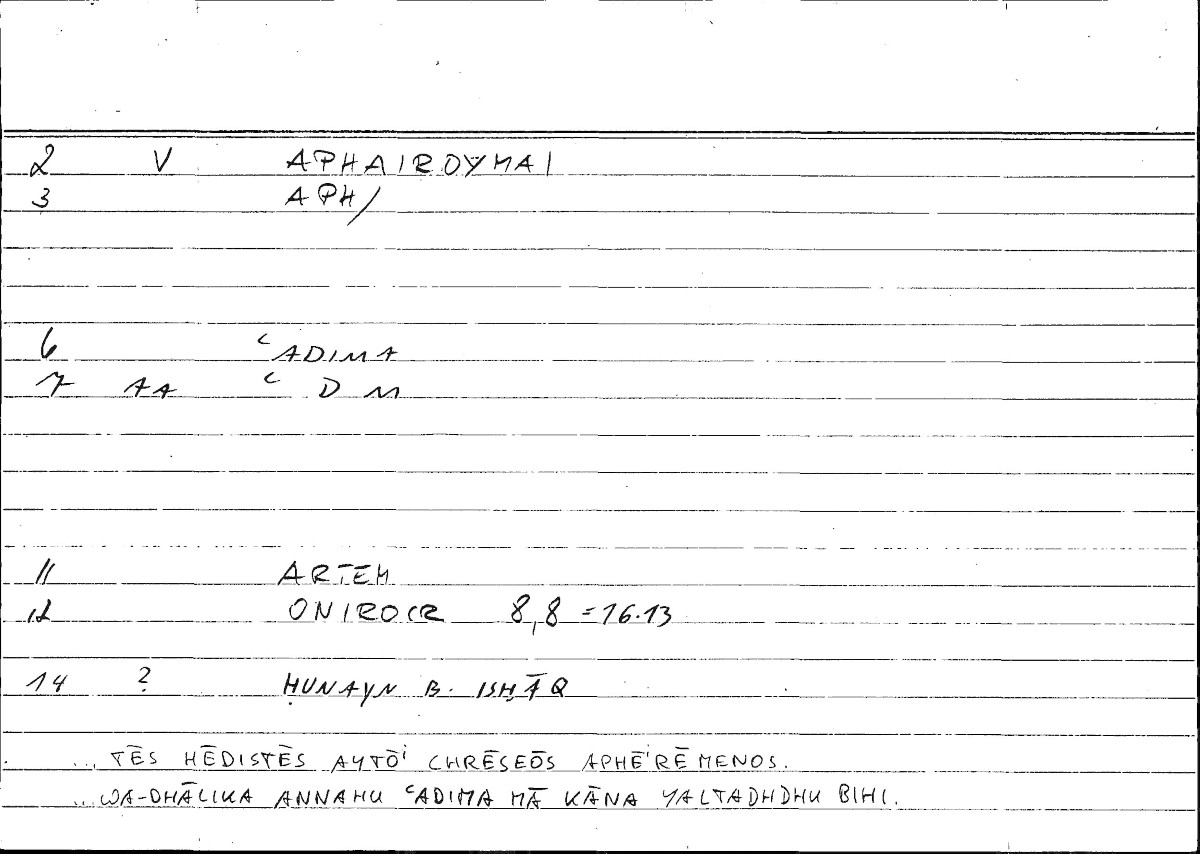 2 V APHAIROYMAI
3 APH/
6 ʿADIMA
7 AA ʿ D M
11 ARTEM
12 ONIROCR 8,8 = 16.13
14 ? ḤUNAYN B. ISḤĀQ
... TĒS HĒDISTĒS AYTŌⁱ CHRĒSEŌS APHĒⁱRĒMENOS.
... WA-DHĀLIKA ANNAHU ʿADIMA MĀ KĀNA YALTADHDHU BIHI.